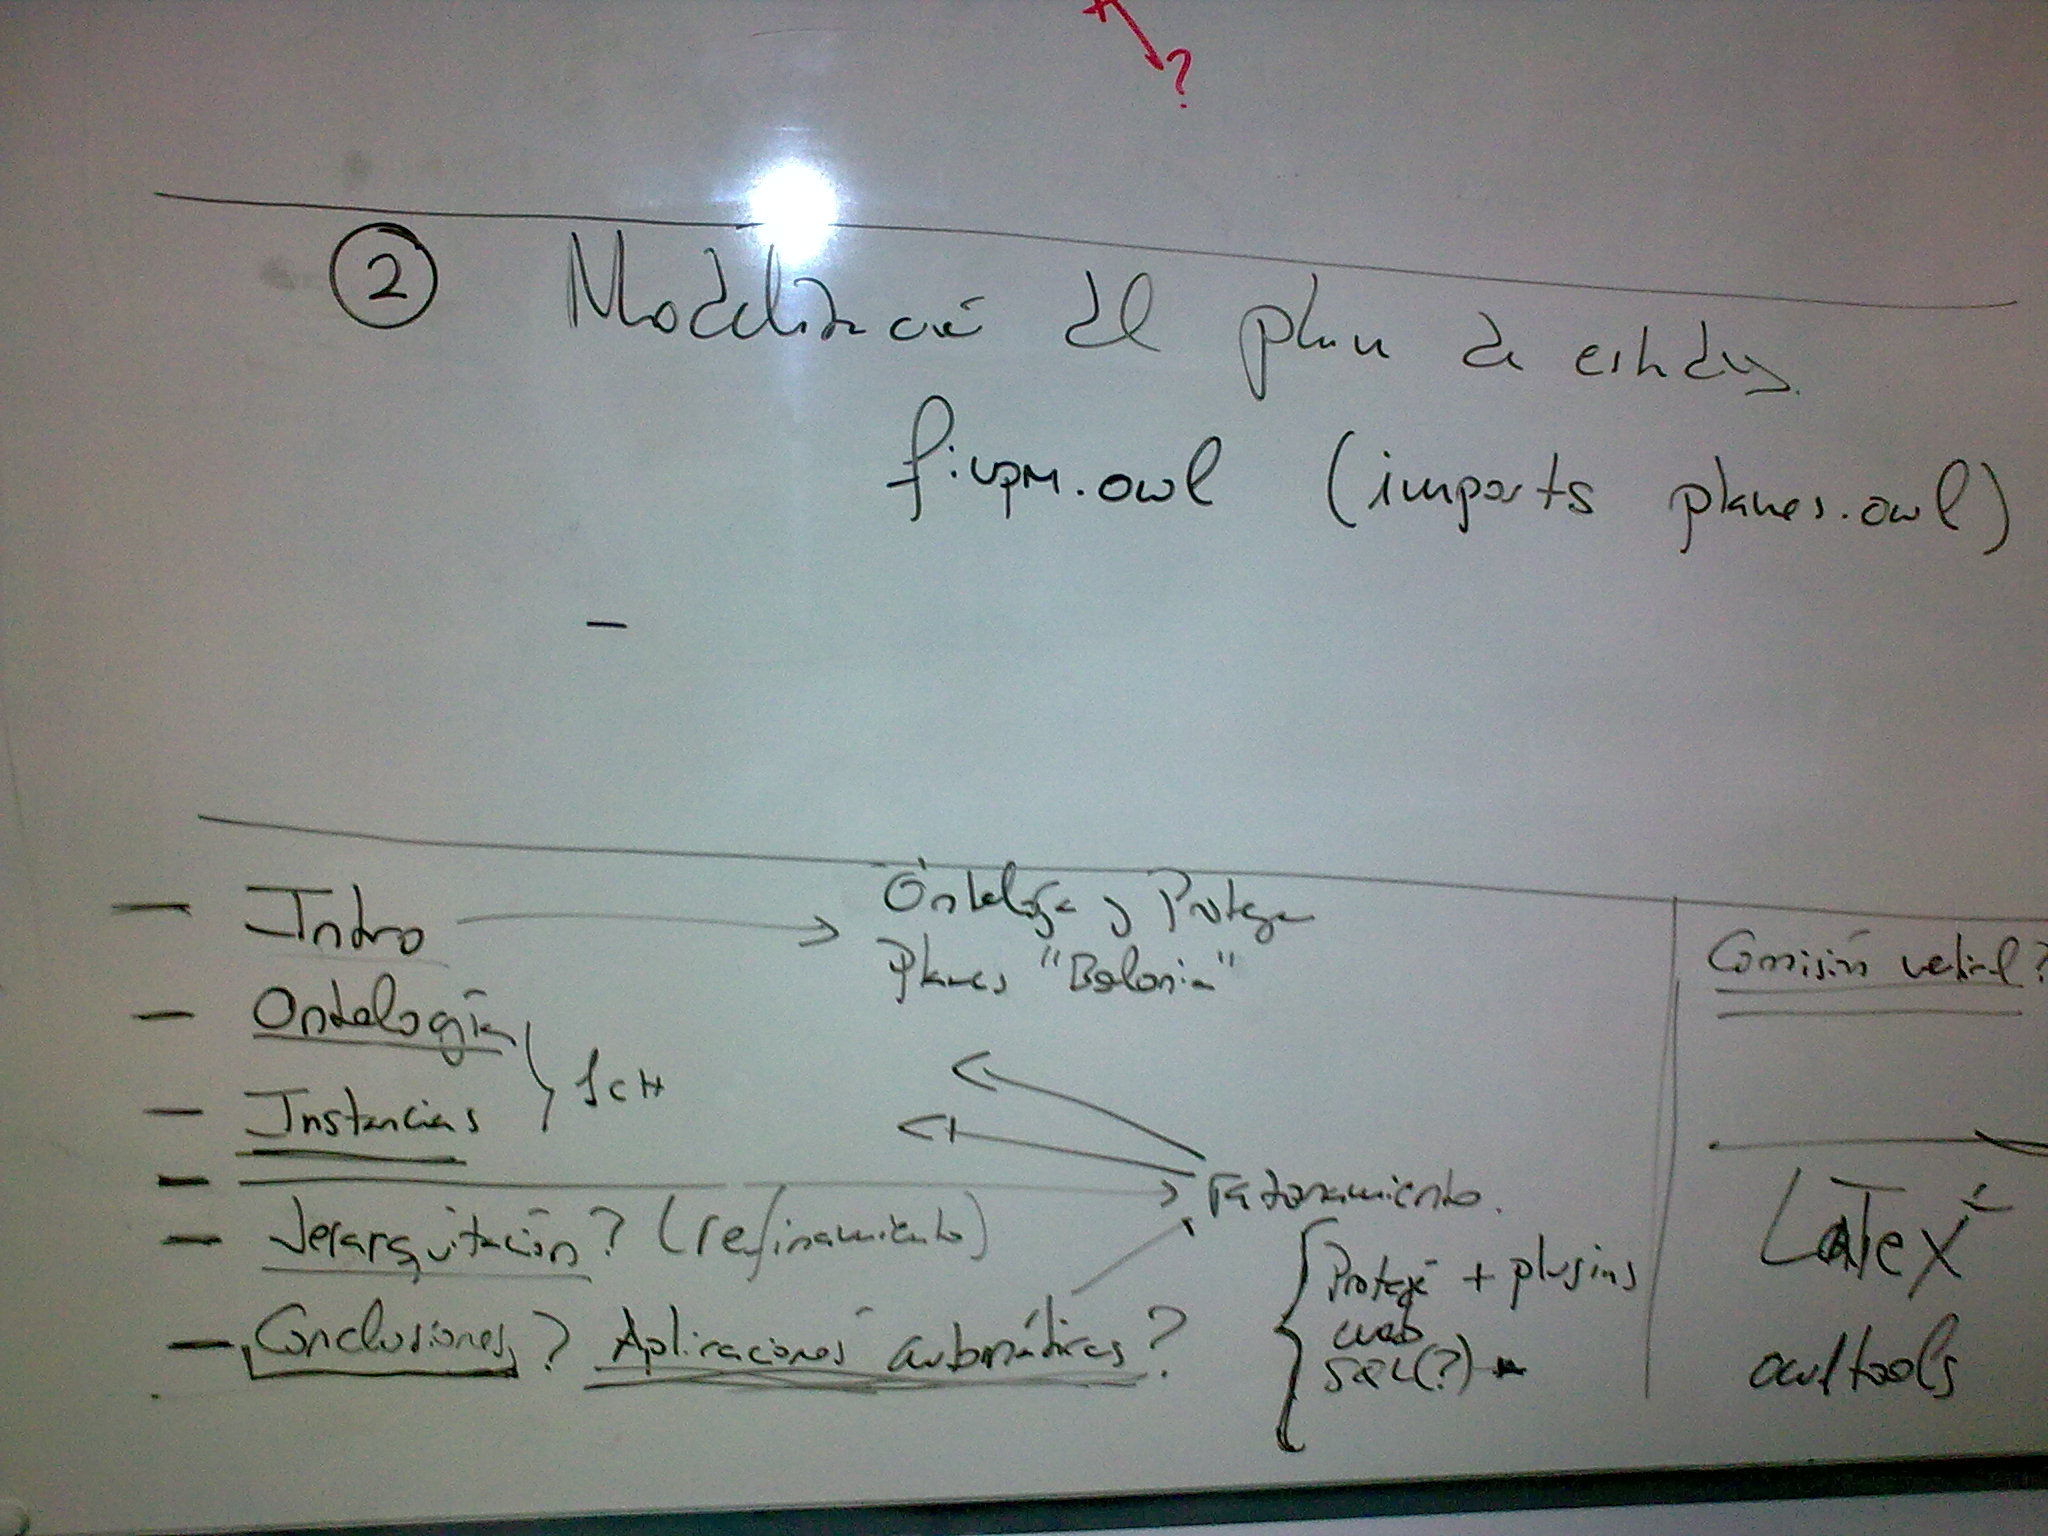 ?
2 Modelización del plan de estudios
fiupm.owl (imports planes.owl)
-
- Intro → Ontología y Protege
Planes "Bolonia"
- Ontología
- Instancias
- → razonamiento.
- Jerarquización? (refinamiento)
- Conclusiones? Aplicaciones automáticas?
{ Protegé + plugins
web
SQL(?)
Comisión vertical?
LaTex
owltools